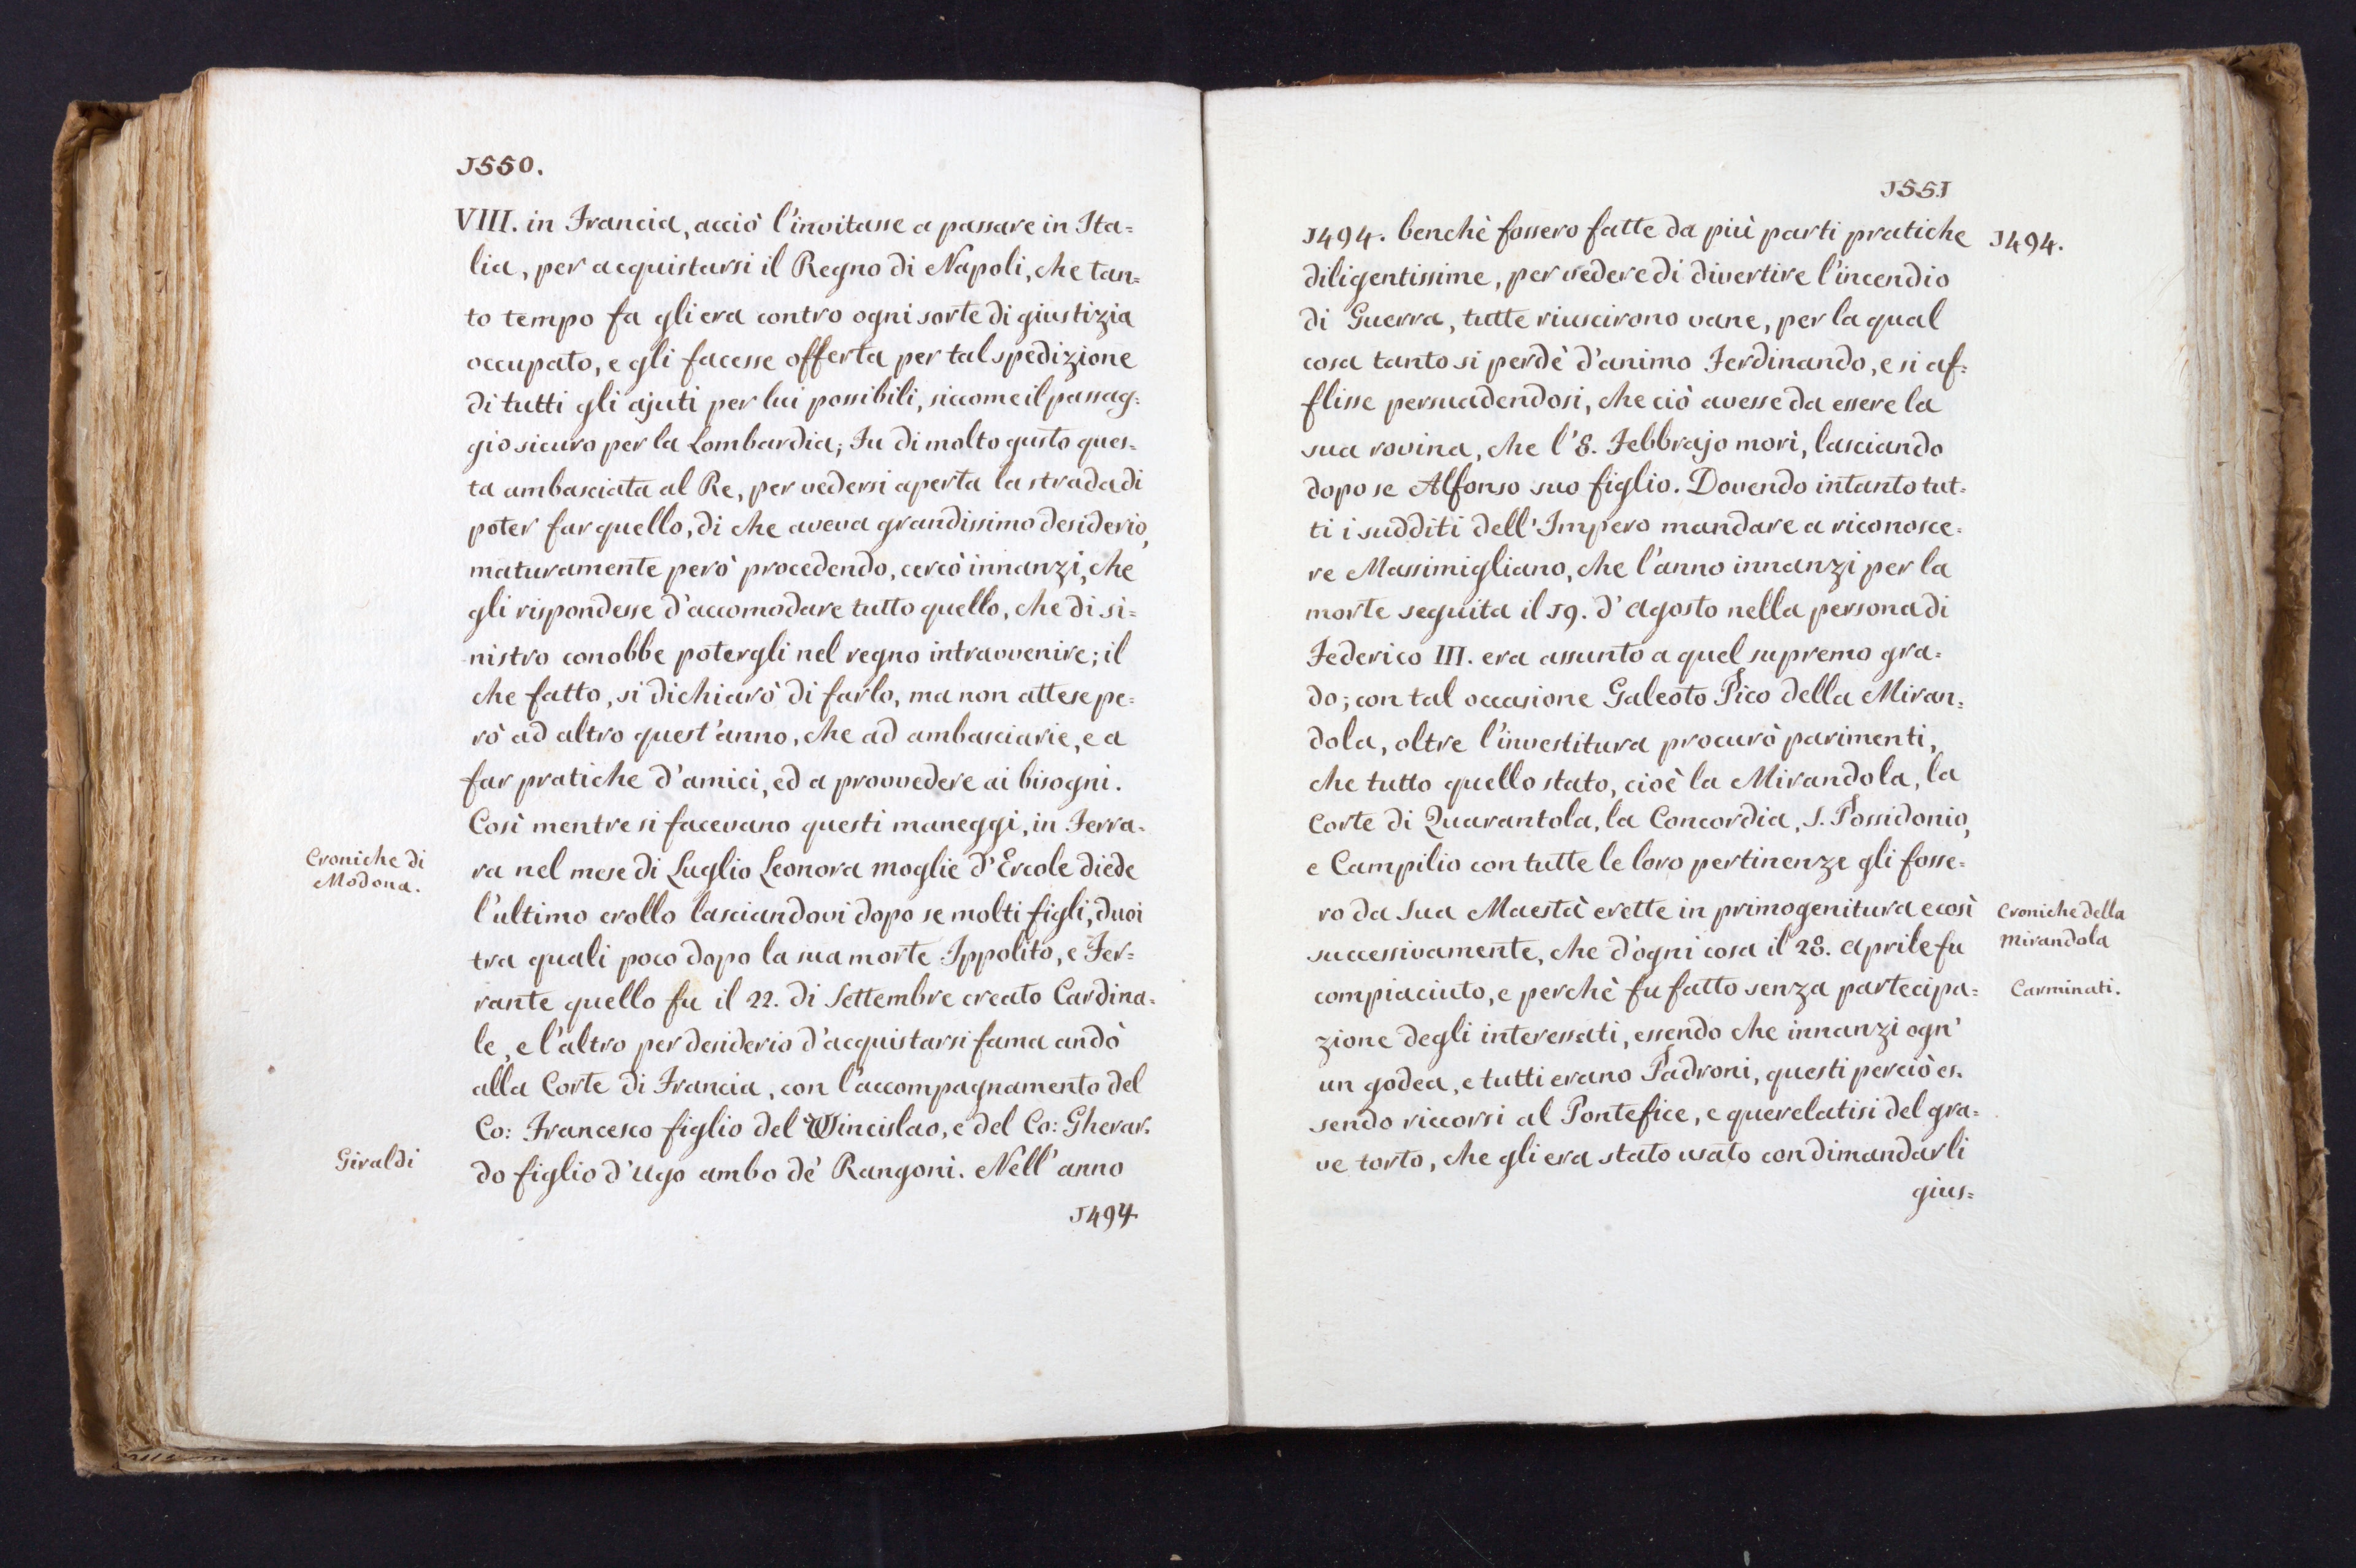 1550.
VIII. in Francia, acciò l'invitasse a passare in Ita=
lia, per acquistarsi il Regno di Napoli, che tan=
to tempo fa gli era contro ogni sorte di giustizia
occupato, e gli facesse offerta per tal spedizione
di tutti gli ajuti per lui possibili, siccome il passag=
gio sicuro per la Lombardia; Fu di molto gusto ques=
ta ambasciata al Re, per vedersi aperta la strada di
poter far quello, di che aveva grandissimo desiderio,
maturamente però procedendo, cercò innanzi, che
gli rispondesse d'accomodare tutto quello, che di si=
nistro conobbe potergli nel regno intravvenire; il
che fatto, si dichiarò di farlo, ma non attese pe=
rò ad altro quest'anno, che ad ambasciarie, e a
far pratiche d'amici, ed a provvedere ai bisogni.
Così mentre si facevano questi maneggi, in Ferra=
Croniche di
Modona.
ra nel mese di Luglio Leonora moglie d'Ercole diede
l'ultimo crollo lasciandovi dopo se molti figli, duoi
tra quali poco dopo la sua morte Ippolito, e Fer=
rante quello fu il 22. di Settembre creato Cardina=
le, e l'altro per desiderio d'acquistarsi fama andò
alla Corte di Francia, con l'accompagnamento del
Co: Francesco figlio del Wincislao, e del Co: Gherar=
Giraldi
do figlio d'Ugo ambo dè Rangoni. Nell'anno
1494
1551
1494. benchè fossero fatte da più parti pratiche
1494.
diligentissime, per vedere di divertire l'incendio
di Guerra, tutte riuscirono vane, per la qual
cosa tanto si perdè d'animo Ferdinando, e si af=
flisse persuadendosi, che ciò avesse da essere la
sua rovina, che l'8. Febbrajo morì, lasciando
dopo se Alfonso suo figlio. Dovendo intanto tut=
ti i sudditi dell'Impero mandare a riconosce=
re Massimigliano, che l'anno innanzi per la
morte seguita il 19. d'Agosto nella persona di
Federico III. era assunto a quel supremo gra=
do; con tal occasione Galeoto Pico della Miran=
dola, oltre l'investitura procurò parimenti,
che tutto quello stato, cioè la Mirandola, la
Corte di Quarantola, la Concordia, S. Possidonio,
e Campilio con tutte le loro pertinenze gli fosse=
ro da Sua Maestà erette in primogenitura e così
Croniche della
Mirandola
successivamente, che d'ogni cosa il 28. Aprile fu
compiaciuto, e perchè fu fatto senza partecipa=
Carminati.
zione degli interessati, essendo che innanzi ogn'
un godea, e tutti erano Padroni, questi perciò es=
sendo riccorsi al Pontefice, e querelatisi del gra=
ve torto, che gli era stato usato con dimandarli
gius=